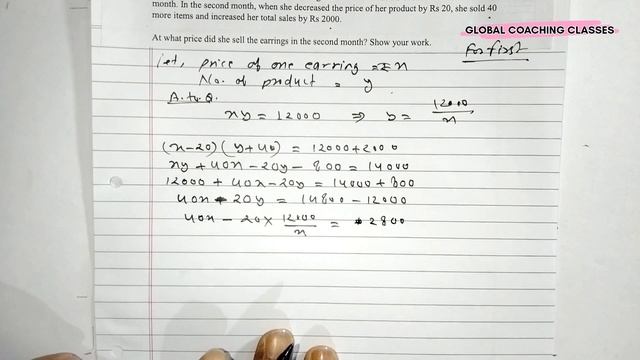 month. In the second month, when she decreased the price of her product by Rs 20, she sold 40
more items and increased her total sales by Rs 2000.
GLOBAL COACHING CLASSES
At what price did she sell the earrings in the second month? Show your work.
For first
let, price of one earring = x
No. of product = y
A.t.Q.
xy = 12000 ⇒ y = 12000/x
(x-20)(y+40) = 12000+2000
xy + 40x - 20y - 800 = 14000
12000 + 40x - 20y = 14000 + 800
40x - 20y = 14800 - 12000
40x - 20 × 12000/x = 2800